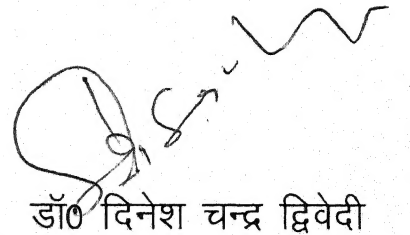 डॉ0 दिनेश चन्द्र द्विवेदी